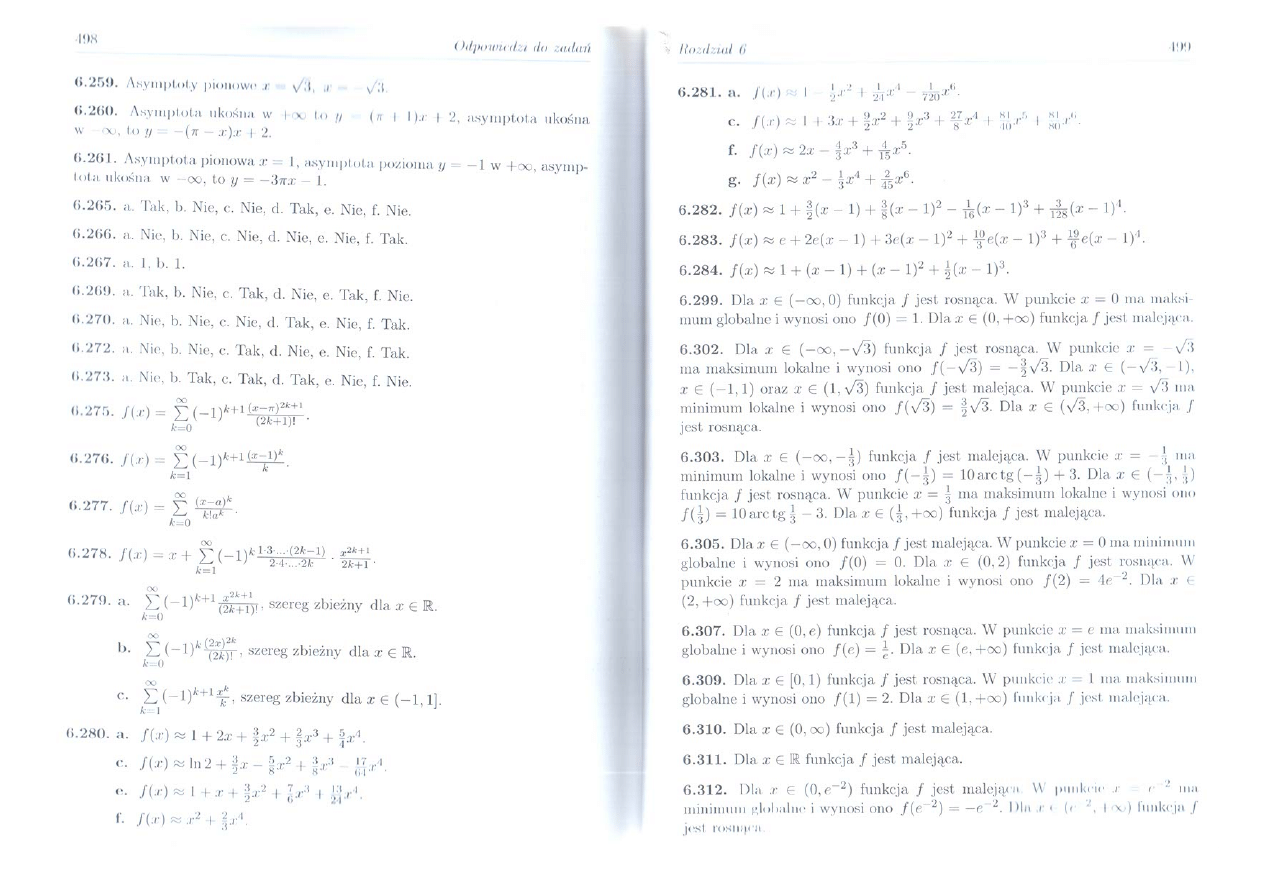 498
Odpowiedzi do zadań
6.259. Asymptoty pionowe x = √3, x = −√3.
6.260. Asymptota ukośna w +∞ to y = (π + 1)x + 2, asymptota ukośna
w −∞, to y = −(π − x)x + 2.
6.261. Asymptota pionowa x = 1, asymptota pozioma y = −1 w +∞, asymp-
tota ukośna w −∞, to y = −3πx − 1.
6.265. a. Tak, b. Nie, c. Nie, d. Tak, e. Nie, f. Nie.
6.266. a. Nie, b. Nie, c. Nie, d. Nie, e. Nie, f. Tak.
6.267. a. 1, b. 1.
6.269. a. Tak, b. Nie, c. Tak, d. Nie, e. Tak, f. Nie.
6.270. a. Nie, b. Nie, c. Nie, d. Tak, e. Nie, f. Tak.
6.272. a. Nie, b. Nie, c. Tak, d. Nie, e. Nie, f. Tak.
6.273. a. Nie, b. Tak, c. Tak, d. Tak, e. Nie, f. Nie.
6.275. f(x) = ∑_{k=0}^{∞} (−1)^{k+1} (x−π)^{2k+1}/(2k+1)!.
6.276. f(x) = ∑_{k=1}^{∞} (−1)^{k+1} (x−1)^k/k.
6.277. f(x) = ∑_{k=0}^{∞} (x−a)^k/(k!a^k).
6.278. f(x) = x + ∑_{k=1}^{∞} (−1)^k (1·3·...·(2k−1))/(2·4·...·2k) · x^{2k+1}/(2k+1).
6.279. a. ∑_{k=0}^{∞} (−1)^{k+1} x^{2k+1}/(2k+1)!, szereg zbieżny dla x ∈ ℝ.
b. ∑_{k=0}^{∞} (−1)^k (2x)^{2k}/(2k)!, szereg zbieżny dla x ∈ ℝ.
c. ∑_{k=1}^{∞} (−1)^{k+1} x^k/k, szereg zbieżny dla x ∈ (−1, 1].
6.280. a. f(x) ≈ 1 + 2x + 3/2 x² + 2/3 x³ + 5/4 x⁴.
c. f(x) ≈ ln 2 + 3/2 x − 5/8 x² + 3/8 x³ − 17/64 x⁴.
e. f(x) ≈ 1 + x + 3/2 x² + 7/6 x³ + 13/24 x⁴.
f. f(x) ≈ x² + 2/3 x⁴.
Rozdział 6
499
6.281. a. f(x) ≈ 1 − 1/2 x² + 1/24 x⁴ − 1/720 x⁶.
c. f(x) ≈ 1 + 3x + 9/2 x² + 9/2 x³ + 27/8 x⁴ + 81/40 x⁵ + 81/80 x⁶.
f. f(x) ≈ 2x − 4/3 x³ + 4/15 x⁵.
g. f(x) ≈ x² − 1/3 x⁴ + 2/45 x⁶.
6.282. f(x) ≈ 1 + 3/2 (x − 1) + 3/8 (x − 1)² − 1/16 (x − 1)³ + 3/128 (x − 1)⁴.
6.283. f(x) ≈ e + 2e(x − 1) + 3e(x − 1)² + 10/3 e(x − 1)³ + 19/6 e(x − 1)⁴.
6.284. f(x) ≈ 1 + (x − 1) + (x − 1)² + 1/2 (x − 1)³.
6.299. Dla x ∈ (−∞, 0) funkcja f jest rosnąca. W punkcie x = 0 ma maksi-
mum globalne i wynosi ono f(0) = 1. Dla x ∈ (0, +∞) funkcja f jest malejąca.
6.302. Dla x ∈ (−∞, −√3) funkcja f jest rosnąca. W punkcie x = −√3
ma maksimum lokalne i wynosi ono f(−√3) = −3/2 √3. Dla x ∈ (−√3, −1),
x ∈ (−1, 1) oraz x ∈ (1, √3) funkcja f jest malejąca. W punkcie x = √3 ma
minimum lokalne i wynosi ono f(√3) = 3/2 √3. Dla x ∈ (√3, +∞) funkcja f
jest rosnąca.
6.303. Dla x ∈ (−∞, −1/3) funkcja f jest malejąca. W punkcie x = −1/3 ma
minimum lokalne i wynosi ono f(−1/3) = 10 arc tg (−1/3) + 3. Dla x ∈ (−1/3, 1/3)
funkcja f jest rosnąca. W punkcie x = 1/3 ma maksimum lokalne i wynosi ono
f(1/3) = 10 arc tg 1/3 − 3. Dla x ∈ (1/3, +∞) funkcja f jest malejąca.
6.305. Dla x ∈ (−∞, 0) funkcja f jest malejąca. W punkcie x = 0 ma minimum
globalne i wynosi ono f(0) = 0. Dla x ∈ (0, 2) funkcja f jest rosnąca. W
punkcie x = 2 ma maksimum lokalne i wynosi ono f(2) = 4e⁻². Dla x ∈
(2, +∞) funkcja f jest malejąca.
6.307. Dla x ∈ (0, e) funkcja f jest rosnąca. W punkcie x = e ma maksimum
globalne i wynosi ono f(e) = 1/e. Dla x ∈ (e, +∞) funkcja f jest malejąca.
6.309. Dla x ∈ [0, 1) funkcja f jest rosnąca. W punkcie x = 1 ma maksimum
globalne i wynosi ono f(1) = 2. Dla x ∈ (1, +∞) funkcja f jest malejąca.
6.310. Dla x ∈ (0, ∞) funkcja f jest malejąca.
6.311. Dla x ∈ ℝ funkcja f jest malejąca.
6.312. Dla x ∈ (0, e⁻²) funkcja f jest malejąca. W punkcie x = e⁻² ma
minimum globalne i wynosi ono f(e⁻²) = −e⁻². Dla x ∈ (e⁻², +∞) funkcja f
jest rosnąca.